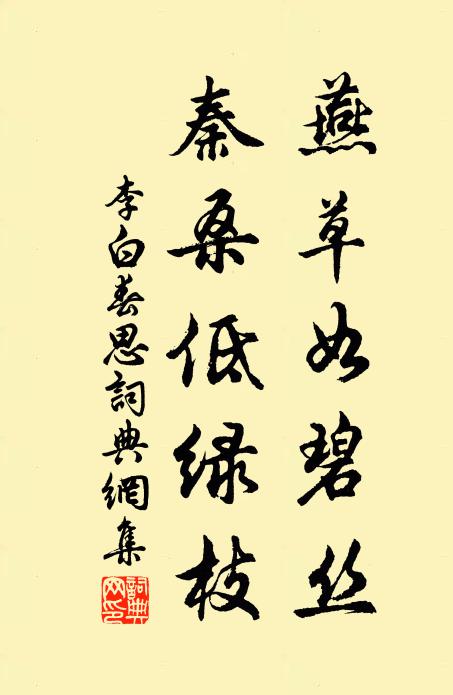 燕草如碧丝
秦桑低绿枝
李白春思詞典網集
詞典
网印